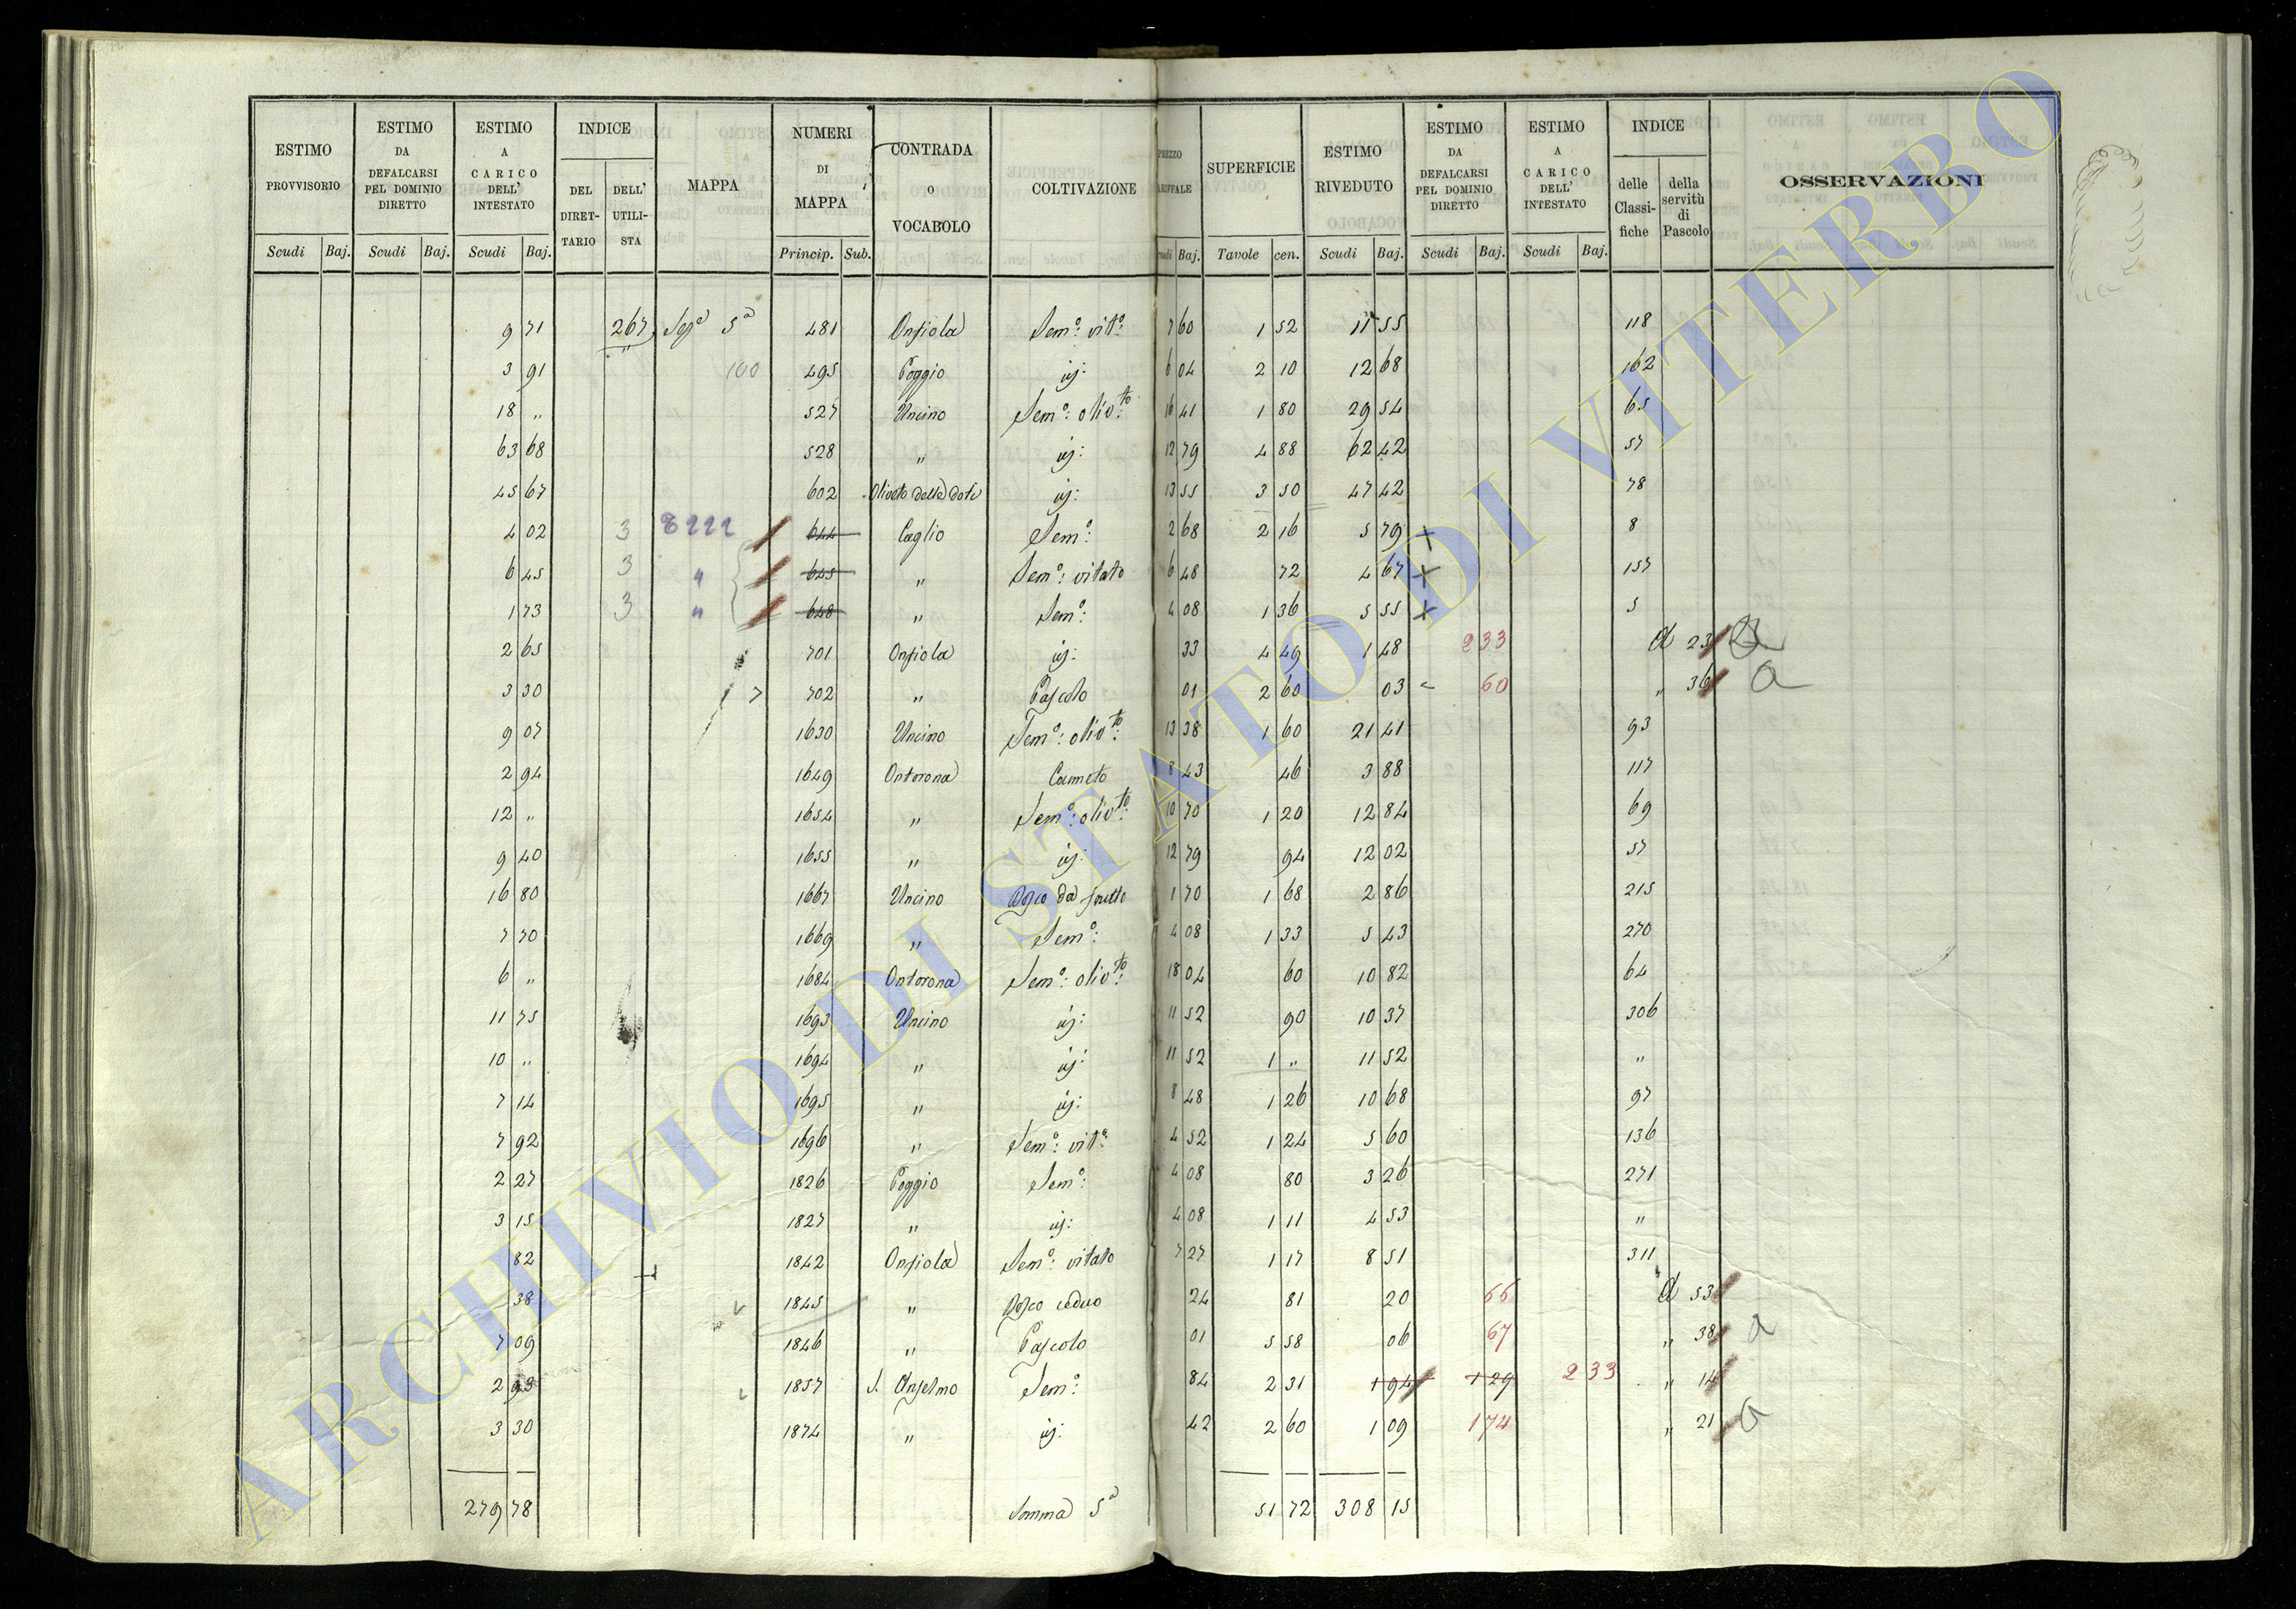 ESTIMO PROVVISORIO | ESTIMO DA DEFALCARSI PEL DOMINIO DIRETTO | ESTIMO A CARICO DELL' INTESTATO | INDICE DEL DIRETTARIO | DELL' UTILISTA | MAPPA | NUMERI DI MAPPA | CONTRADA O VOCABOLO | COLTIVAZIONE | PREZZO | SUPERFICIE | ESTIMO RIVEDUTO | ESTIMO DA DEFALCARSI PEL DOMINIO DIRETTO | ESTIMO A CARICO DELL' INTESTATO | INDICE delle Classifiche | della servitù di Pascolo | OSSERVAZIONI
Scudi | Baj. | Scudi | Baj. | Scudi | Baj. | Princip. | Sub. | Baj. | Tavole | cen. | Scudi | Baj. | Scudi | Baj. | Scudi | Baj.
9 71 | 267 | Sezª 5ª | 481 | Onfiola | Semº: vitº: | 7 60 | 1 52 | 11 55 | 118
3 91 | 100 | 495 | Poggio | id: | 6 04 | 2 10 | 12 68 | 162
18 „ | 527 | Uncino | Semº: olivto: | 16 41 | 1 80 | 29 54 | 65
63 68 | 528 | „ | id: | 12 79 | 4 88 | 62 42 | 57
45 67 | 602 | Oliveto delle doti | id: | 13 55 | 3 50 | 47 42 | 78
4 02 | 3 | 8222 | 644 | Caglio | Semº: | 2 68 | 2 16 | 5 79 | x | 8
6 45 | 3 | „ | 645 | „ | Semº: vitato | 6 48 | 72 | 4 67 | x | 157
1 73 | 3 | „ | 648 | „ | Semº: | 4 08 | 1 36 | 5 55 | x | 5
2 65 | 701 | Onfiola | id: | 33 | 4 49 | 1 48 | 233 | a 23
3 30 | 702 | „ | Pascolo | 01 | 2 60 | 03 | 60 | „ 36 | a
9 07 | 1630 | Uncino | Semº: olivto: | 13 38 | 1 60 | 21 41 | 93
2 94 | 1649 | Ontorona | Canneto | 8 43 | 46 | 3 88 | 117
12 „ | 1654 | „ | Semº: olivto: | 10 70 | 1 20 | 12 84 | 69
9 40 | 1655 | „ | id: | 12 79 | 94 | 12 02 | 57
16 80 | 1667 | Uncino | Bosco da frutto | 1 70 | 1 68 | 2 86 | 215
7 70 | 1669 | „ | Semº: | 4 08 | 1 33 | 5 43 | 270
6 „ | 1684 | Ontorona | Semº: olivto: | 18 04 | 60 | 10 82 | 64
11 75 | 1693 | Uncino | id: | 11 52 | 90 | 10 37 | 306
10 „ | 1694 | „ | id: | 11 52 | 1 „ | 11 52 | „
7 14 | 1695 | „ | id: | 8 48 | 1 26 | 10 68 | 97
7 92 | 1696 | „ | Semº: vitº: | 4 52 | 1 24 | 5 60 | 136
2 27 | 1826 | Poggio | Semº: | 4 08 | 80 | 3 26 | 271
3 15 | 1827 | „ | id: | 4 08 | 1 11 | 4 53 | „
82 | 1842 | Onfiola | Semº: vitato | 7 27 | 1 17 | 8 51 | 311
38 | 1845 | „ | Bosco ceduo | 24 | 81 | 20 | 66 | a 53
7 09 | 1846 | „ | Pascolo | 01 | 5 58 | 06 | 67 | „ 38 | a
2 93 | 1857 | S. Anselmo | Semº: | 84 | 2 31 | 1 94 | 1 29 | 233 | „ 14
3 30 | 1874 | „ | id: | 42 | 2 60 | 1 09 | 174 | „ 21 | a
279 78 | Somma 5ª | 51 72 | 308 15
ARCHIVIO DI STATO DI VITERBO